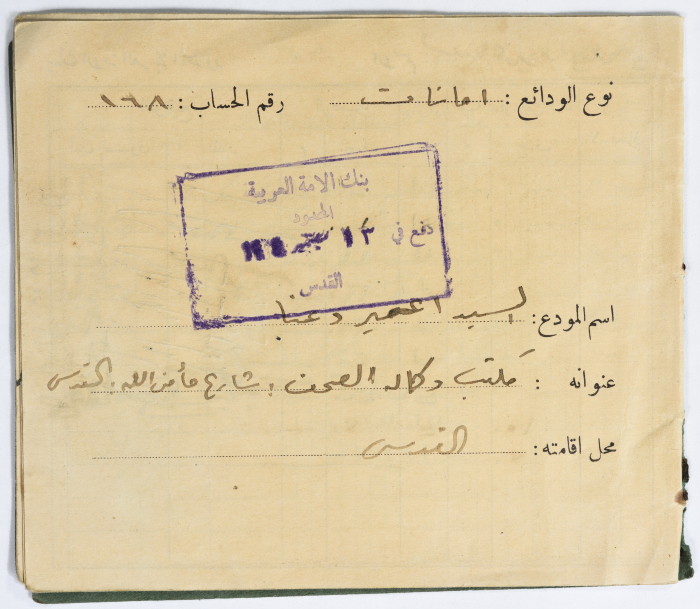 نوع الودائع : امانات رقم الحساب : ١٦٨
بنك الامة العربية
المحدود
دفع في ١٣ سبتمبر
القدس
اسم المودع : السيد دعنا
عنوانه : مكتب وكالة الصحف ، شارع مأمن الله . القدس
محل اقامته : القدس